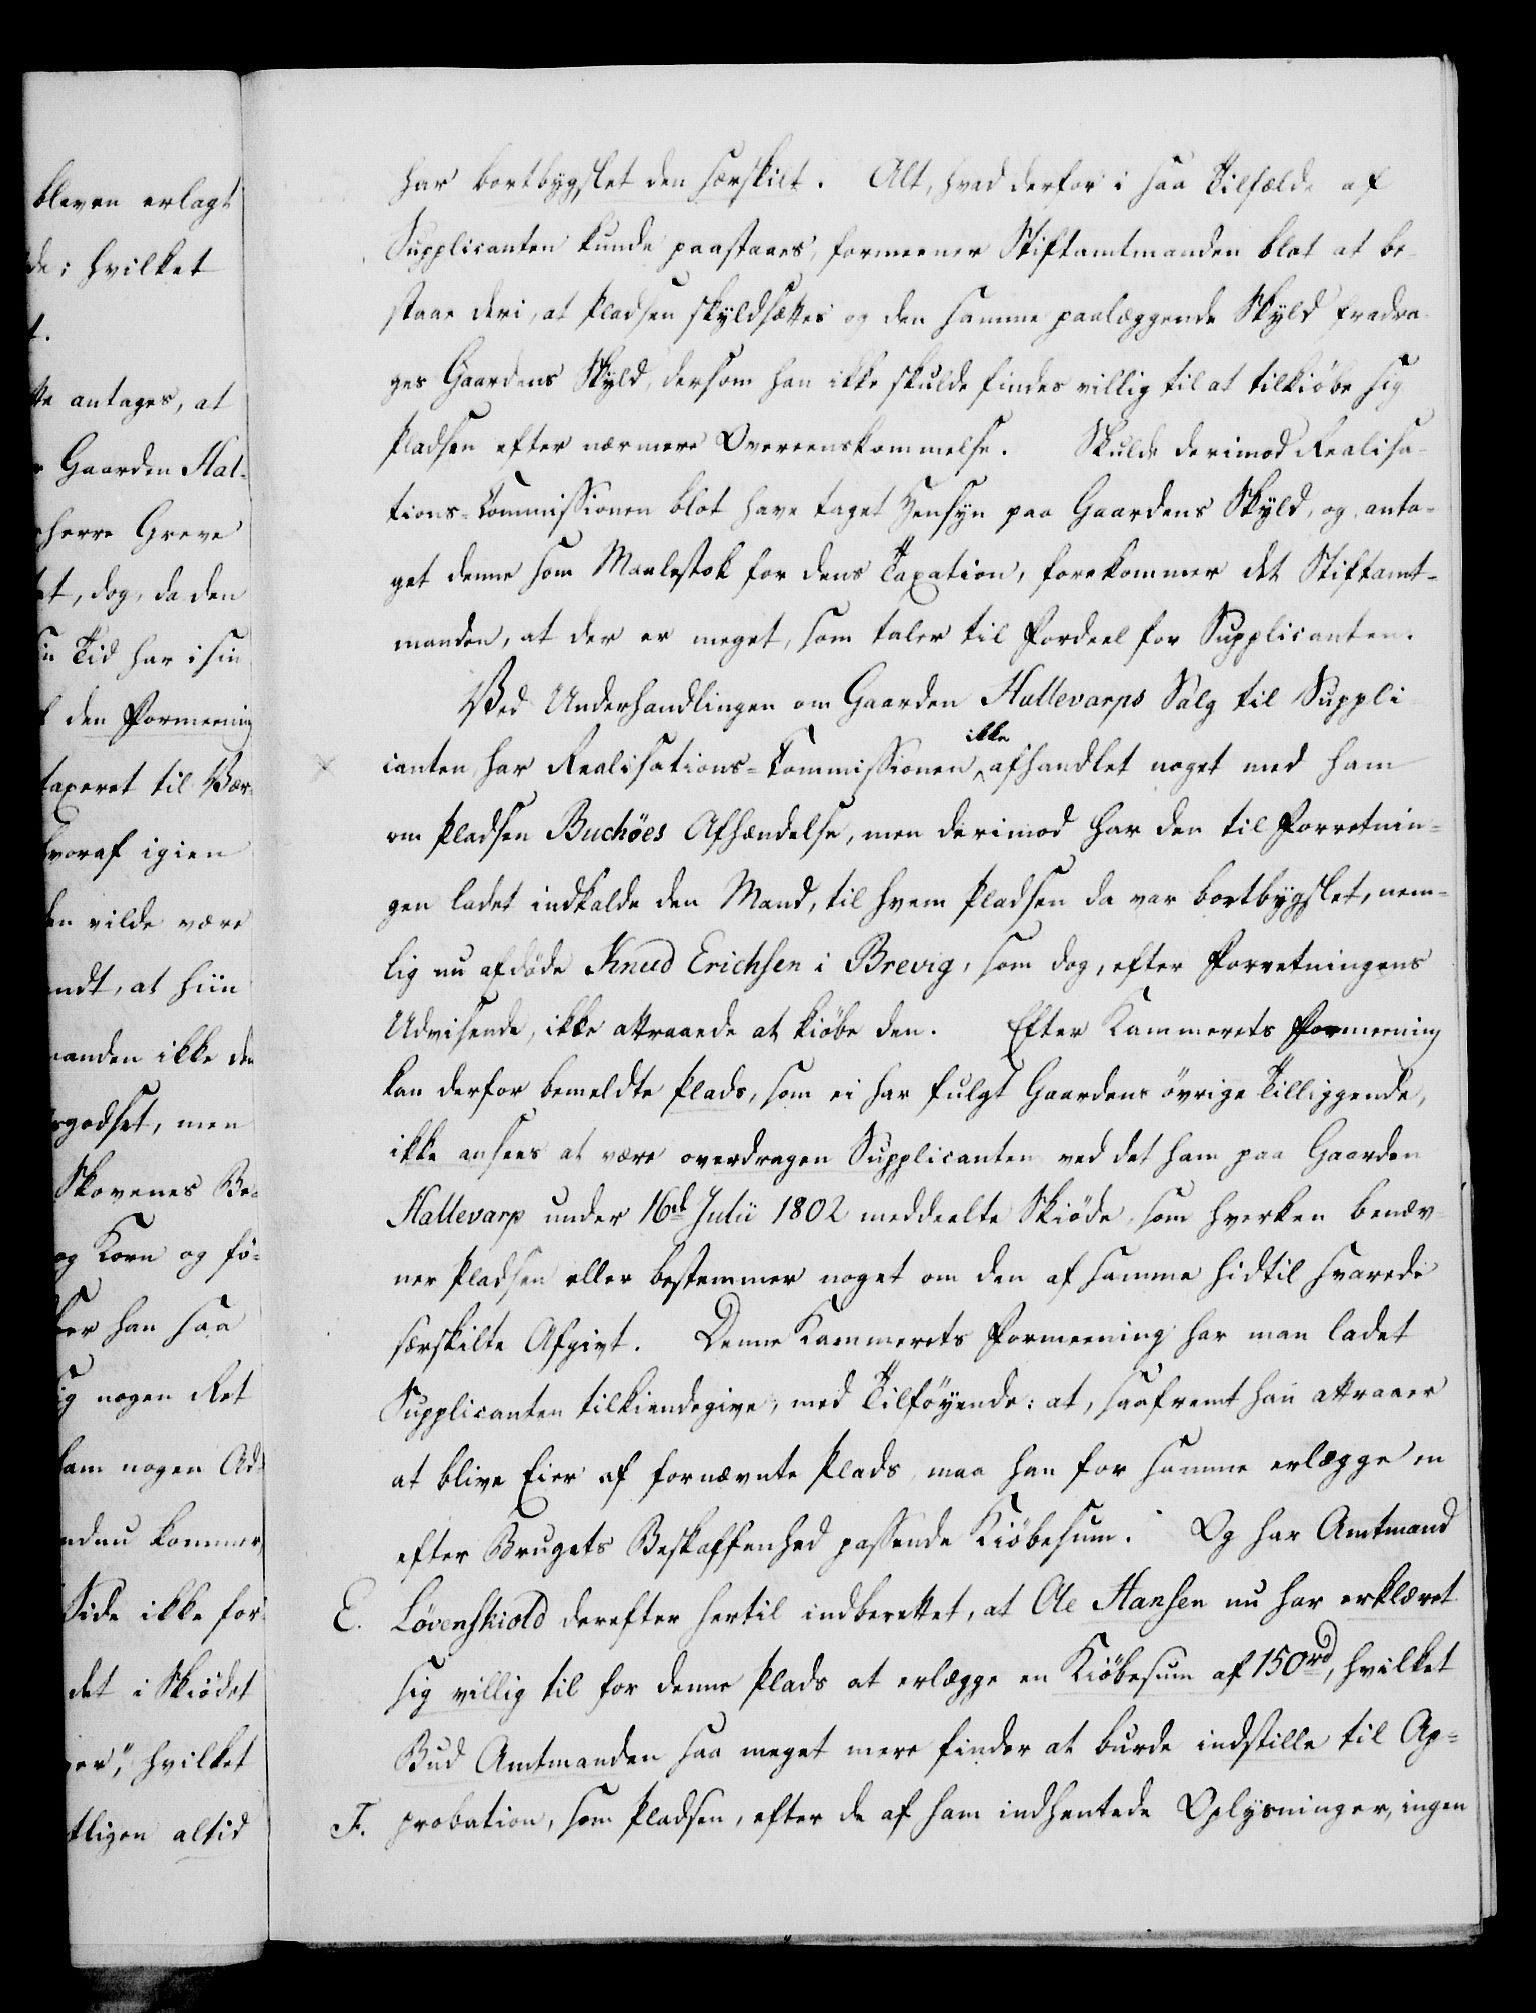 bleven erlagt
de; hvilket
t.
tte antages, at
Gaarden Hal-
herre Greve
t, dog, da den
in Tid har i sin
den Formeening
taxeret til Vær-
hvoraf igien
en vilde være
ndt, at hiin
manden ikke den
sgodset, men
Skovenes Be-
og Korn og fö-
ker han saa
sig nogen Ret
ham nogen Ad-
endnu kommer,
Side ikke for-
det i Skiødet
er", hvilket
tligen altid
har bortbygslet den særskilt. Alt, hvad derfor i saa Tilfælde af
Supplicanten kunde paastaaes, formeener Stiftamtmanden blot at be-
staae deri, at Pladsen skyldsættes og den samme paalæggende Skyld fradra-
ges Gaardens Skyld, dersom han ikke skulde findes villig til at tilkiøbe sig
Pladsen efter nærmere Overeenskommelse. Skulde derimod Realisa-
tions-Commissionen blot have taget Hensyn paa Gaardens Skyld, og anta-
get denne som Maalestok for dens Taxation, forekommer det Stiftamt-
manden, at der er meget, som taler til Fordeel for Supplicanten.
Ved Underhandlingen om Gaarden Hallevarps Salg til Suppli-
ikke
× canten, har Realisations-Commissionen afhandlet noget med ham
om Pladsen Buchöes Afhændelse, men derimod har den til Forretnin-
gen ladet indkalde den Mand, til hvem Pladsen da var bortbygslet, nem-
lig nu afdöde Knud Erichsen i Brevig, som dog, efter Forretningens
Udvisende, ikke attraaede at kiöbe den. Efter Kammerets Formeening
kan derfor bemeldte Plads, som ei har fulgt Gaardens övrige Tilliggende,
ikke ansees at være overdragen Supplicanten ved det ham paa Gaarden
Hallevarp under 16d Julii 1802 meddeelte Skiöde, som hverken benæv-
ner Pladsen eller bestemmer noget om den af samme hidtil svarede
særskilte Afgivt. Denne Kammerets Formeening har man ladet
Supplicanten tilkiendegive, med Tilföyende: at, saafremt han attraaer
at blive Eier af fornævnte Plads, maa han for samme erlægge en
efter Brugets Beskaffenhed passende Kiöbesum. Og har Amtmand
E. Lövenskiold derefter hertil indberettet, at Ole Hansen nu har erklæret
sig villig til for denne Plads at erlægge en Kiöbesum af 150rd, hvilket
Bud Amtmanden saa meget mere finder at burde indstille til Ap-
F. probation, som Pladsen, efter de af ham indhentede Oplysninger, ingen